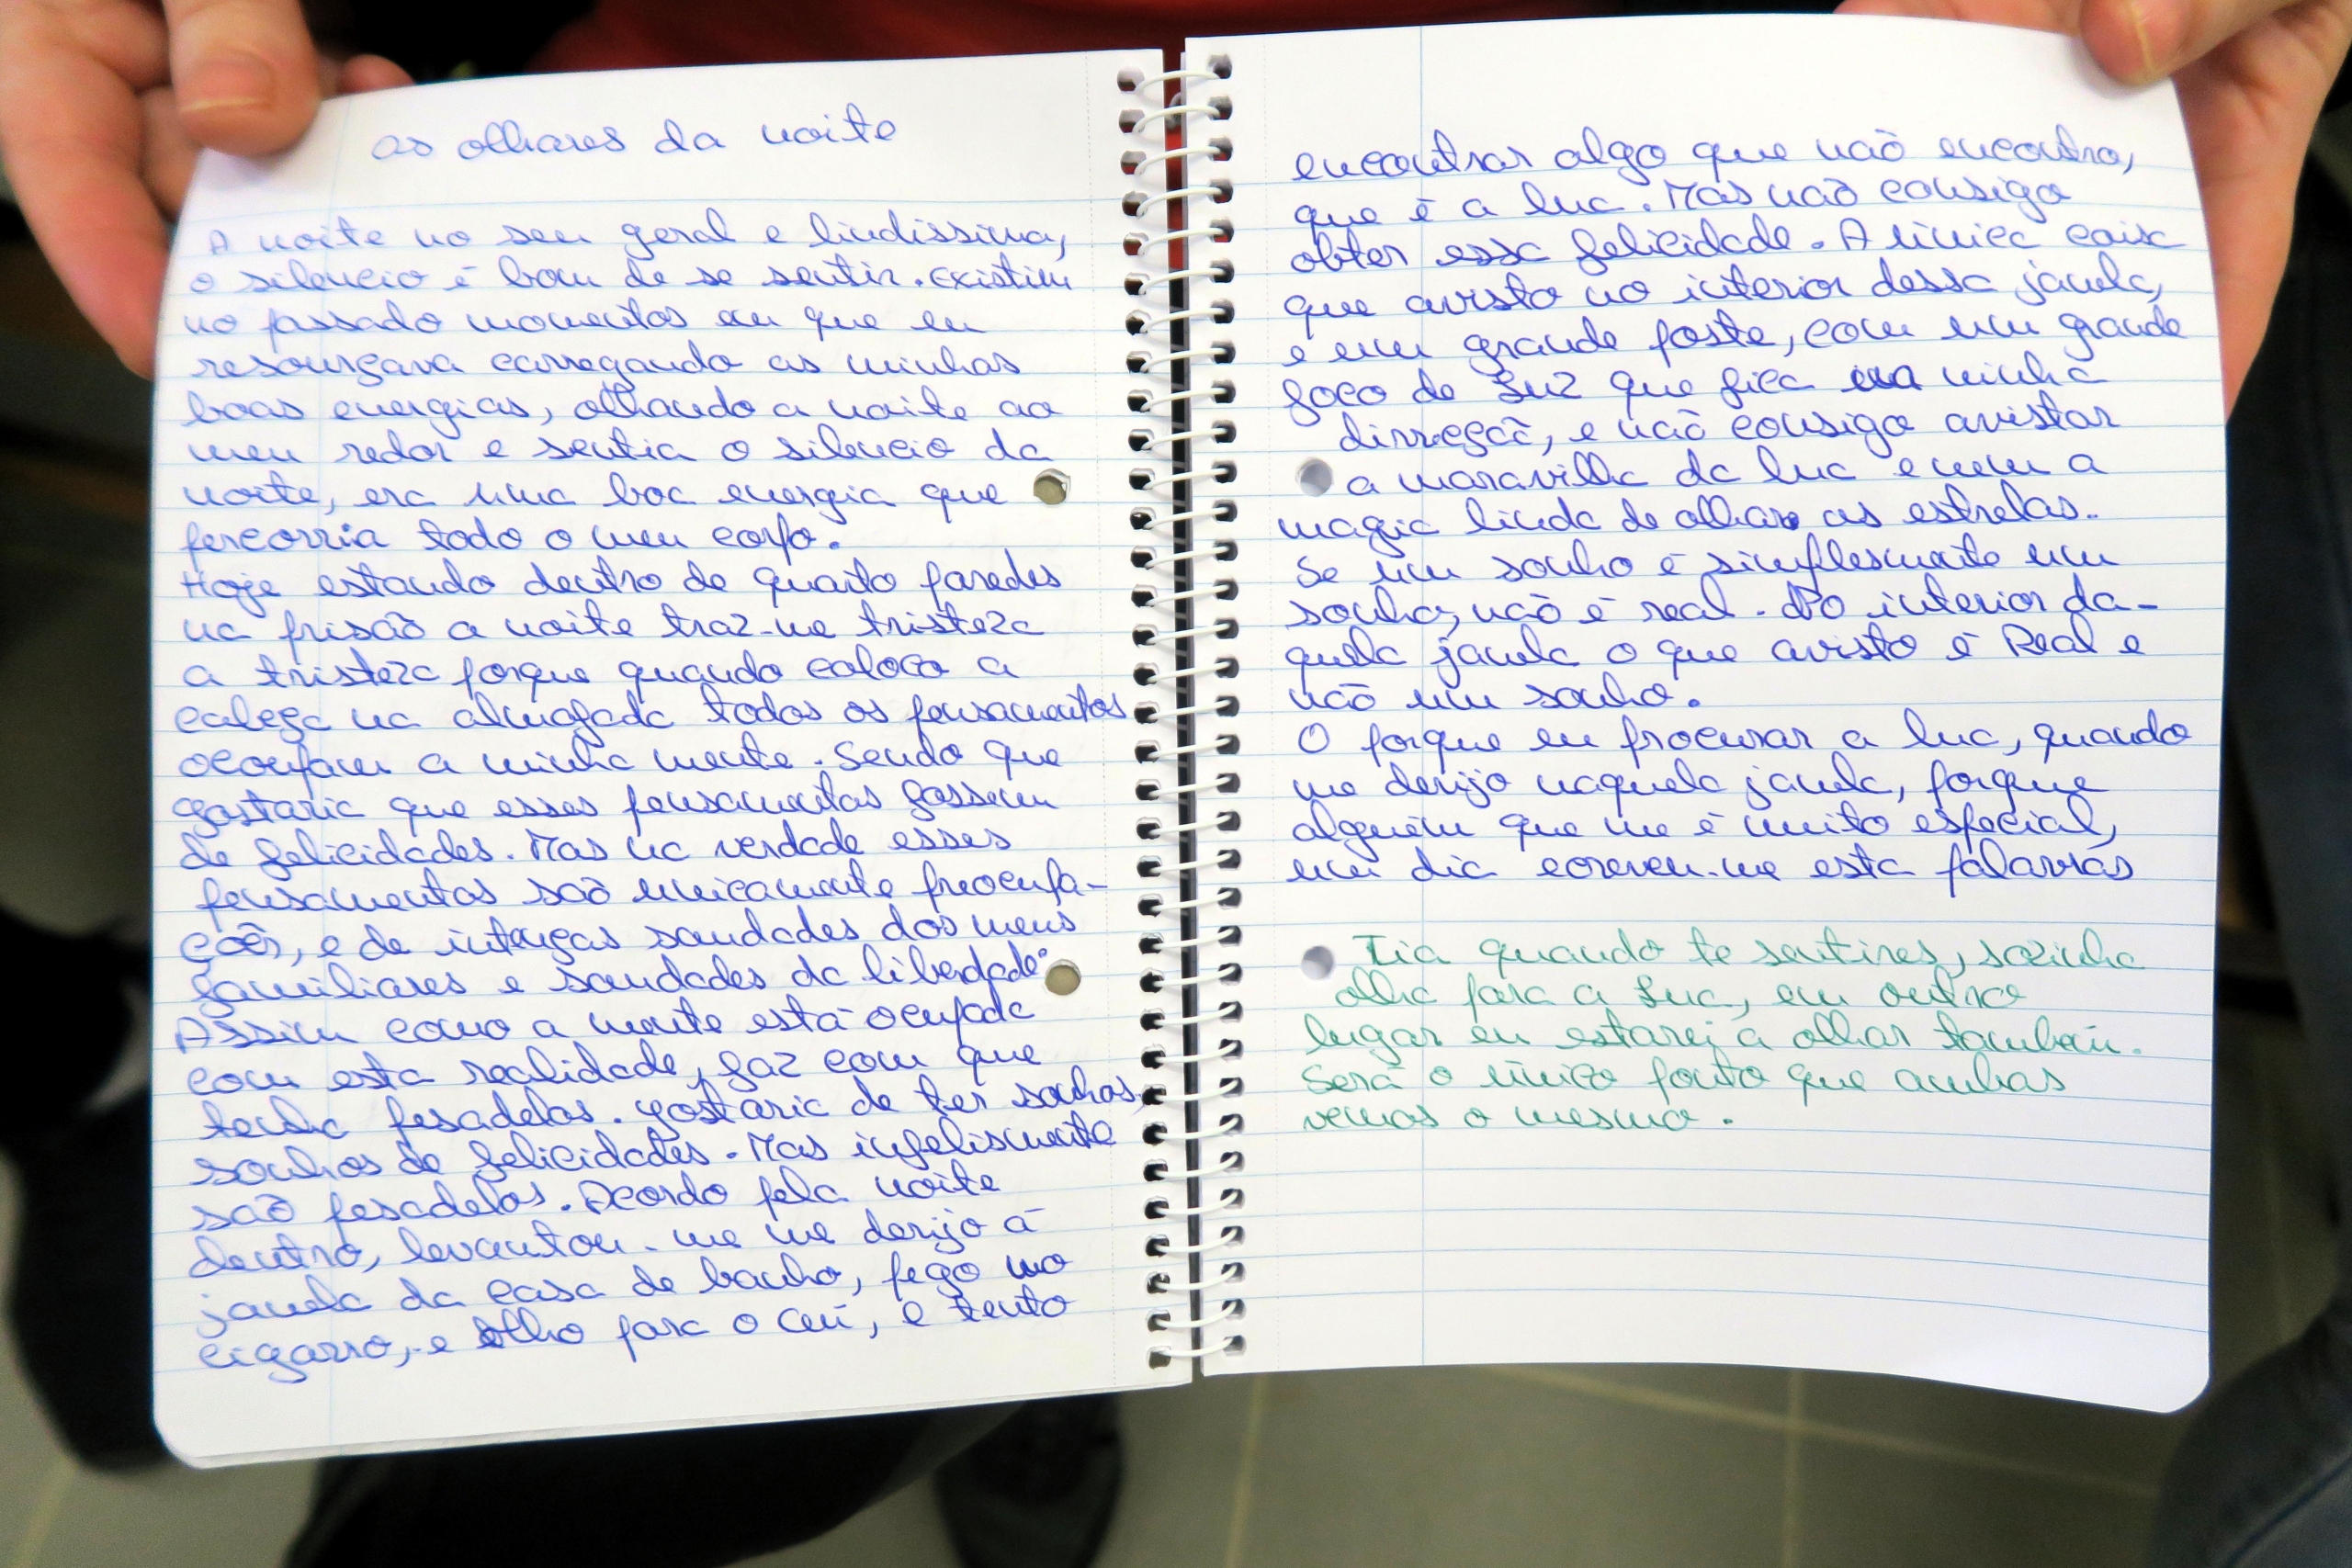 as olhares da noite
A noite no seu geral e lindissima,
o silencio é bom de se sentir. Existim
no passado momentos em que eu
resourgava carregando as minhas
boas energias, olhando a noite ao
meu redor e sentia o silencio da
noite, era uma boa energia que
percorria todo o meu corpo.
Hoje estando dentro de quarto paredes
na prisão a noite traz-me tristeza
a tristeza porque quando coloco a
cabeça na almofada todos os pensamentos
ocoupam a minha mente. Sendo que
gostaria que esses pensamentos fossem
de felicidades. Mas na verdade esses
pensamentos são unicamente preocupa-
ções, e de intenças saudades dos meus
familiares e saudades da liberdade.
Assim como a mente está ocupada
com esta realidade, faz com que
tenha pesadelos. gostaria de ter sonhos,
sonhos de felicidades. Mas infelismente
são pesadelos. Acordo pela noite
dentro, levantou-me me derijo á
janela da casa de banho, pego no
cigarro, e olho para o céu, e tento
encontrar algo que não encontro,
que é a lua. Mas não consigo
obter essa felicidade. A única coisa
que avisto no interior dessa janela,
e um grande poste, com um grande
foco de Luz que fica na minha
dirreção, e não consigo avistar
a maravilha da lua e nem a
magia linda de olhar as estrelas.
Se um sonho é simplesmente um
sonho, não é real. No interior da-
quela janela o que avisto é Real e
não um sonho.
O porque eu procurar a lua, quando
me derijo naquela janela, porque
alguém que me é muito especial,
um dia escreveu-me esta palavras
Tia quando te sentires, sozinha
olha para a Lua, em outro
lugar eu estarei a olhar também.
Será o único ponto que ambas
vemos o mesmo.